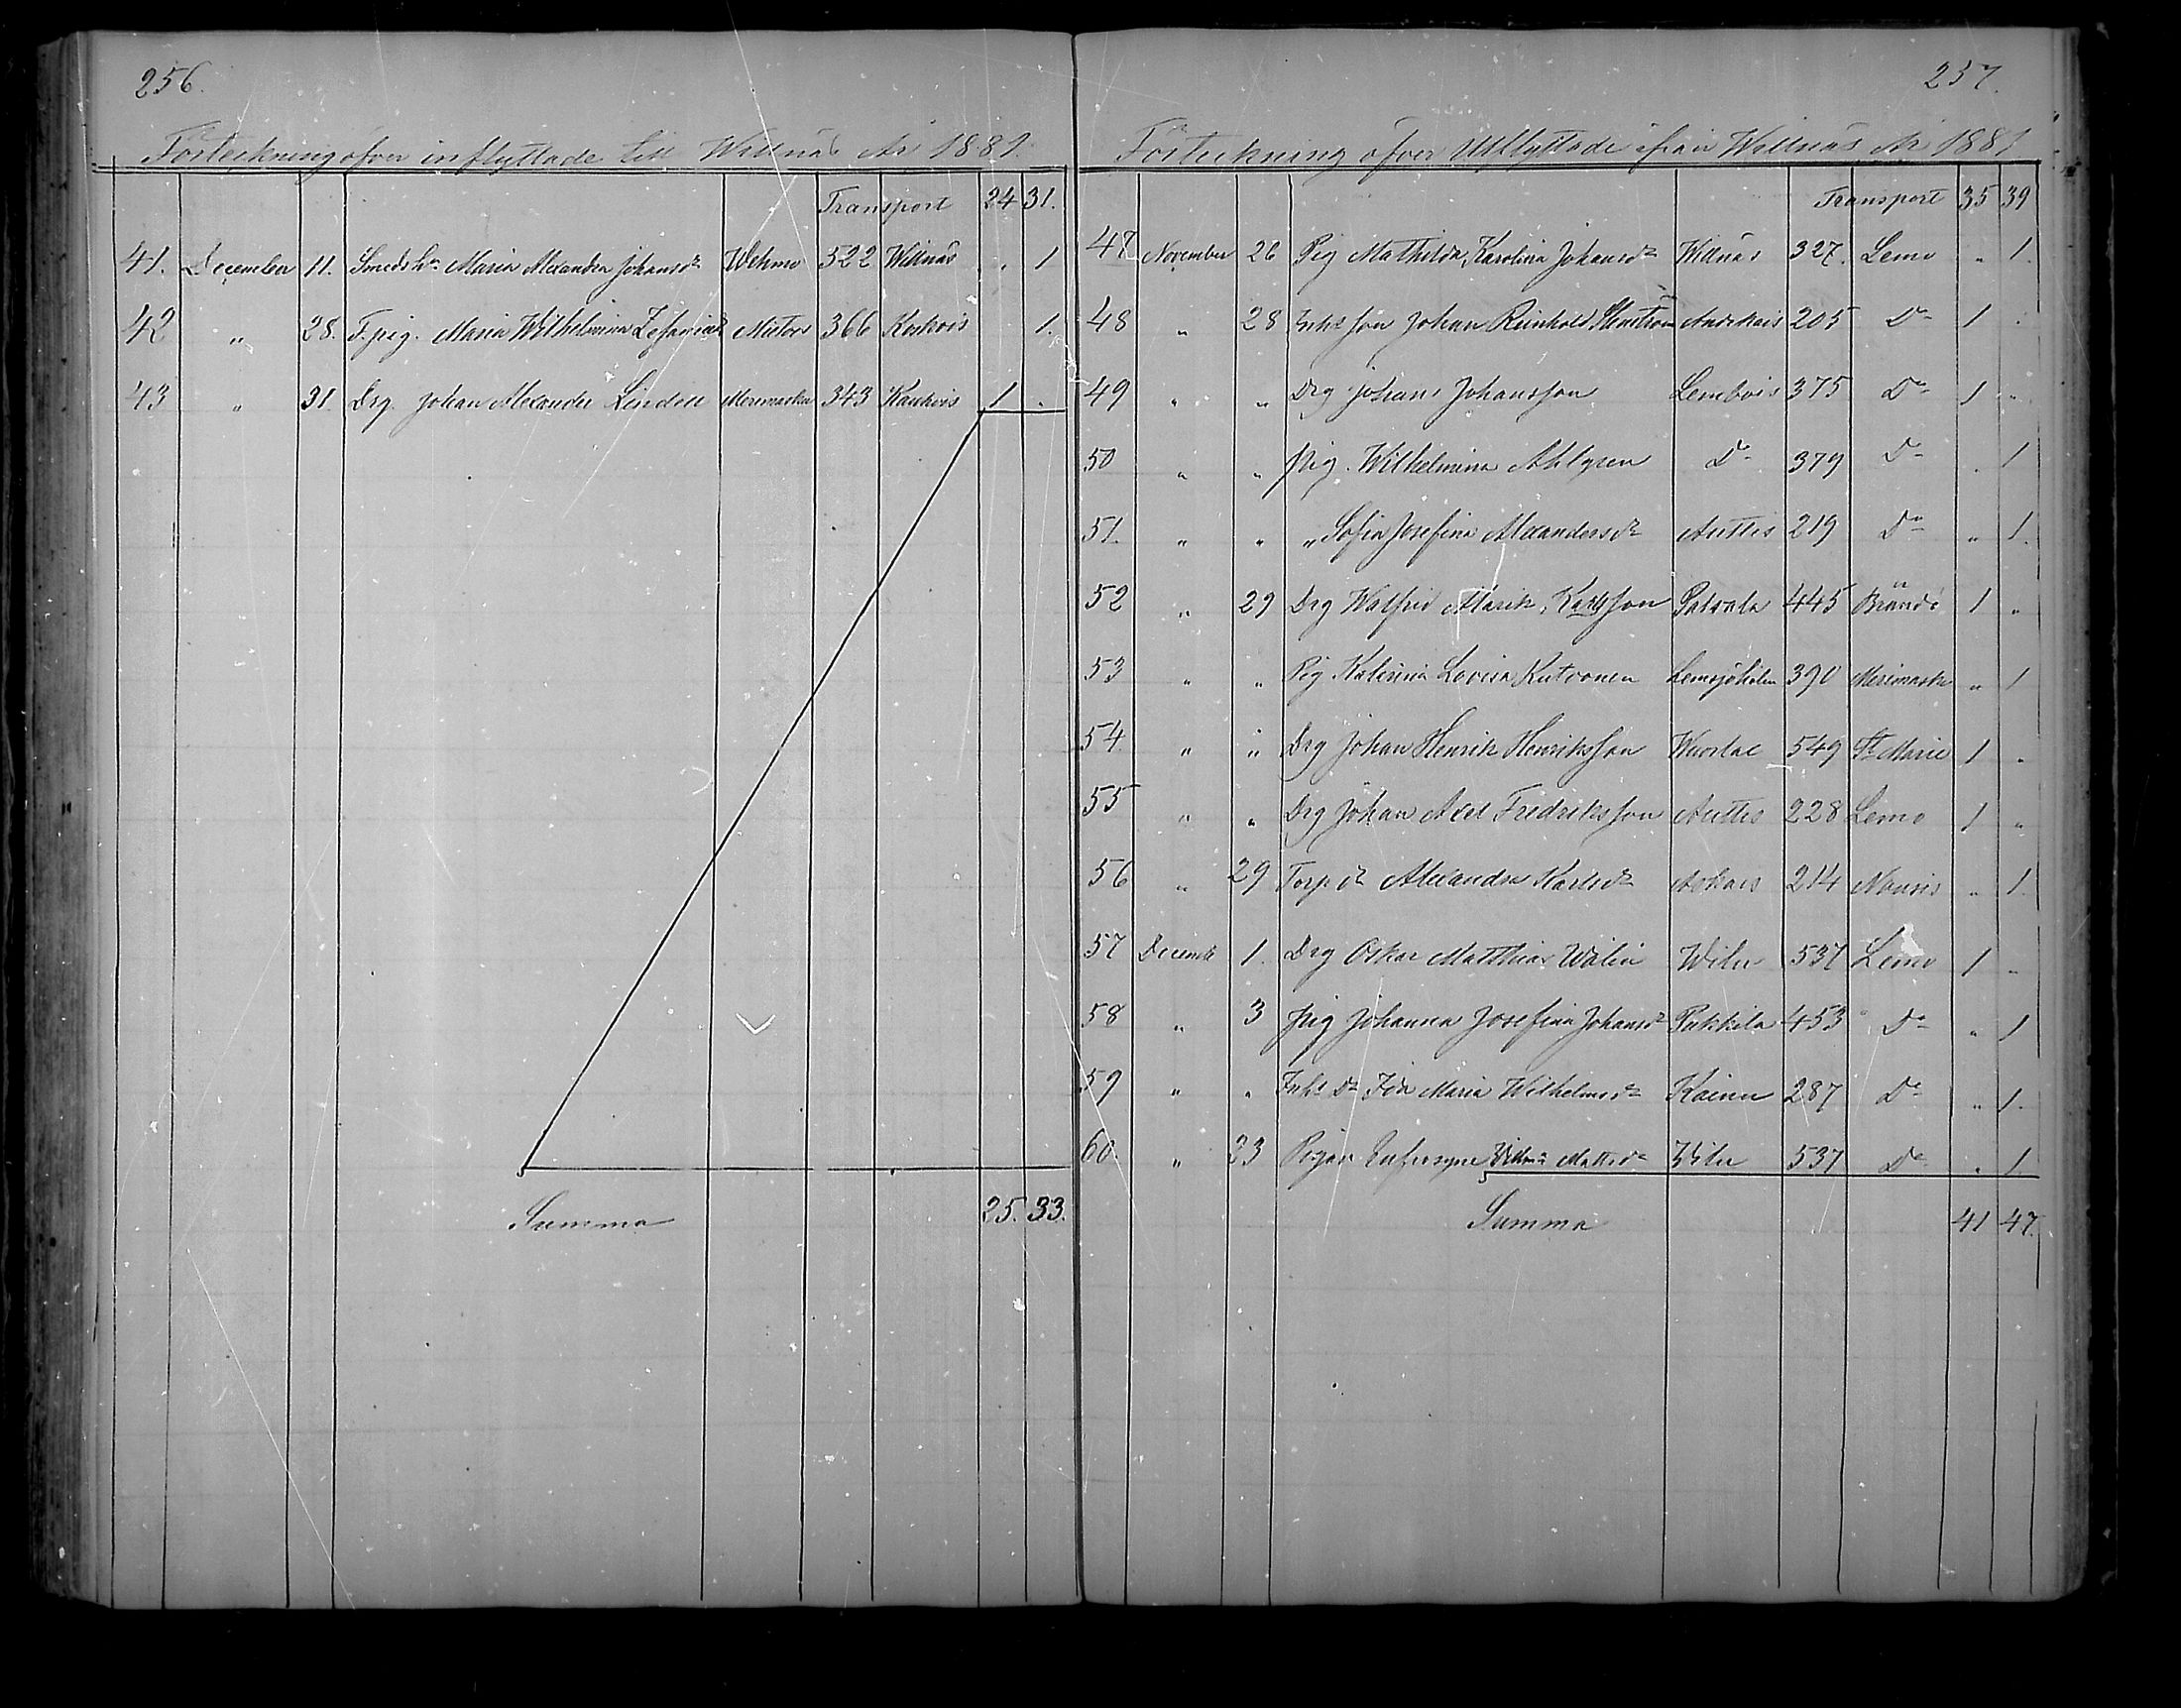 256.
Förteckning öfver inflyttade till Willnäs År 1881.
Transport 24 31.
41. December 11. Smeds hu Maria Alexandra Johansdr Wehmo 522 Willnäs " 1
42 " 28. F. pig. Maria Wilhelmina Mietois 366 Koskois 1.
43 " 31 Drg. Johan Alexander Lindell Merimasku 343 Kankois 1 "
Summa 25. 33.
257.
Förteckning öfver Utflyttade ifrån Willnäs År 1881
Transport 35 39
47 November 26 Pig Mathilda Karolina Johansdr Willnäs 327. Lemo " 1.
48 " 28 Inhs son Johan Reinhold 205 Do 1 "
49 " " Drg Johan Johansson Lembois 375 Do 1 "
50 " " Pig. Wilhelmina Ahlgren Do 379 Do " 1
51. " " " Sofia Josefina Alexandersdr Auttis 219 Do " 1.
52 " 29 Drg Walfrid Alarik Karlsson Satvala 445 Brändö 1 "
53 " " Pig Katarina Lovisa Kutvonen Lemsjöholm 390 Merimasku " 1
54 " " Drg Johan Henrik Henriksson 549 St Marie 1 "
55 " " Drg Johan Axel Fredriksson Auttis 228 Lemo 1 "
56 " 29 Torp dr Alexandra Karlsdr Askais 214 Nousis " 1.
57 Decemb 1. Drg Oskar Matthias Walin Wilu 537 Lemo 1 "
58 " 3 Pig Johanna Josefina Johansdr Pukkila 453 Do " 1
59 " " Inhs dr Ida Maria Wilhelmsdr Kainu 287 Do " 1.
60. " 23 Pigan Eufrosyne Vilhna Mattsdr Wilu 537 Do " 1
Summa 41 47.